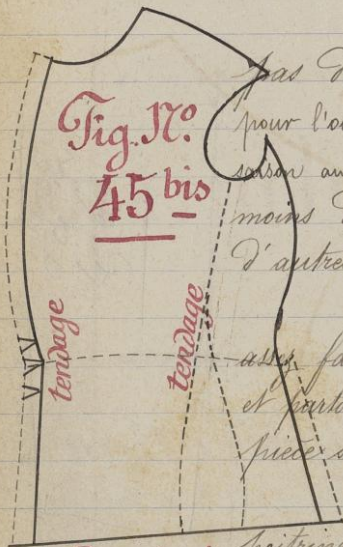 Fig. N°.
45 bis
tendage
tendage
pas d
pour l'o
saison au
moins
d'autre
assez fa
et parto
pièce s
poitrine